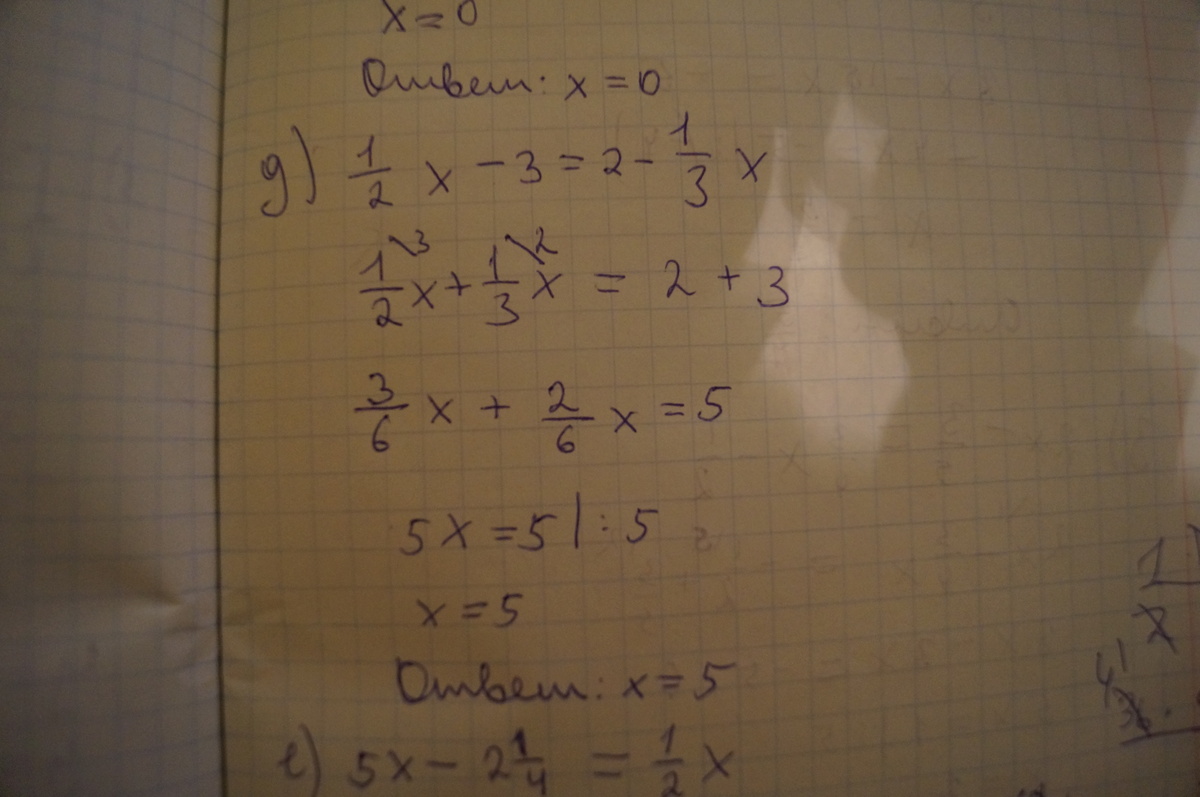 x = 0
Ответ: x = 0
д) 1/2 x - 3 = 2 - 1/3 x
1/2 \3 x + 1/3 \2 x = 2 + 3
3/6 x + 2/6 x = 5
5x = 5 | : 5
x = 5
Ответ: x = 5
е) 5x - 2 1/4 = 1/2 x